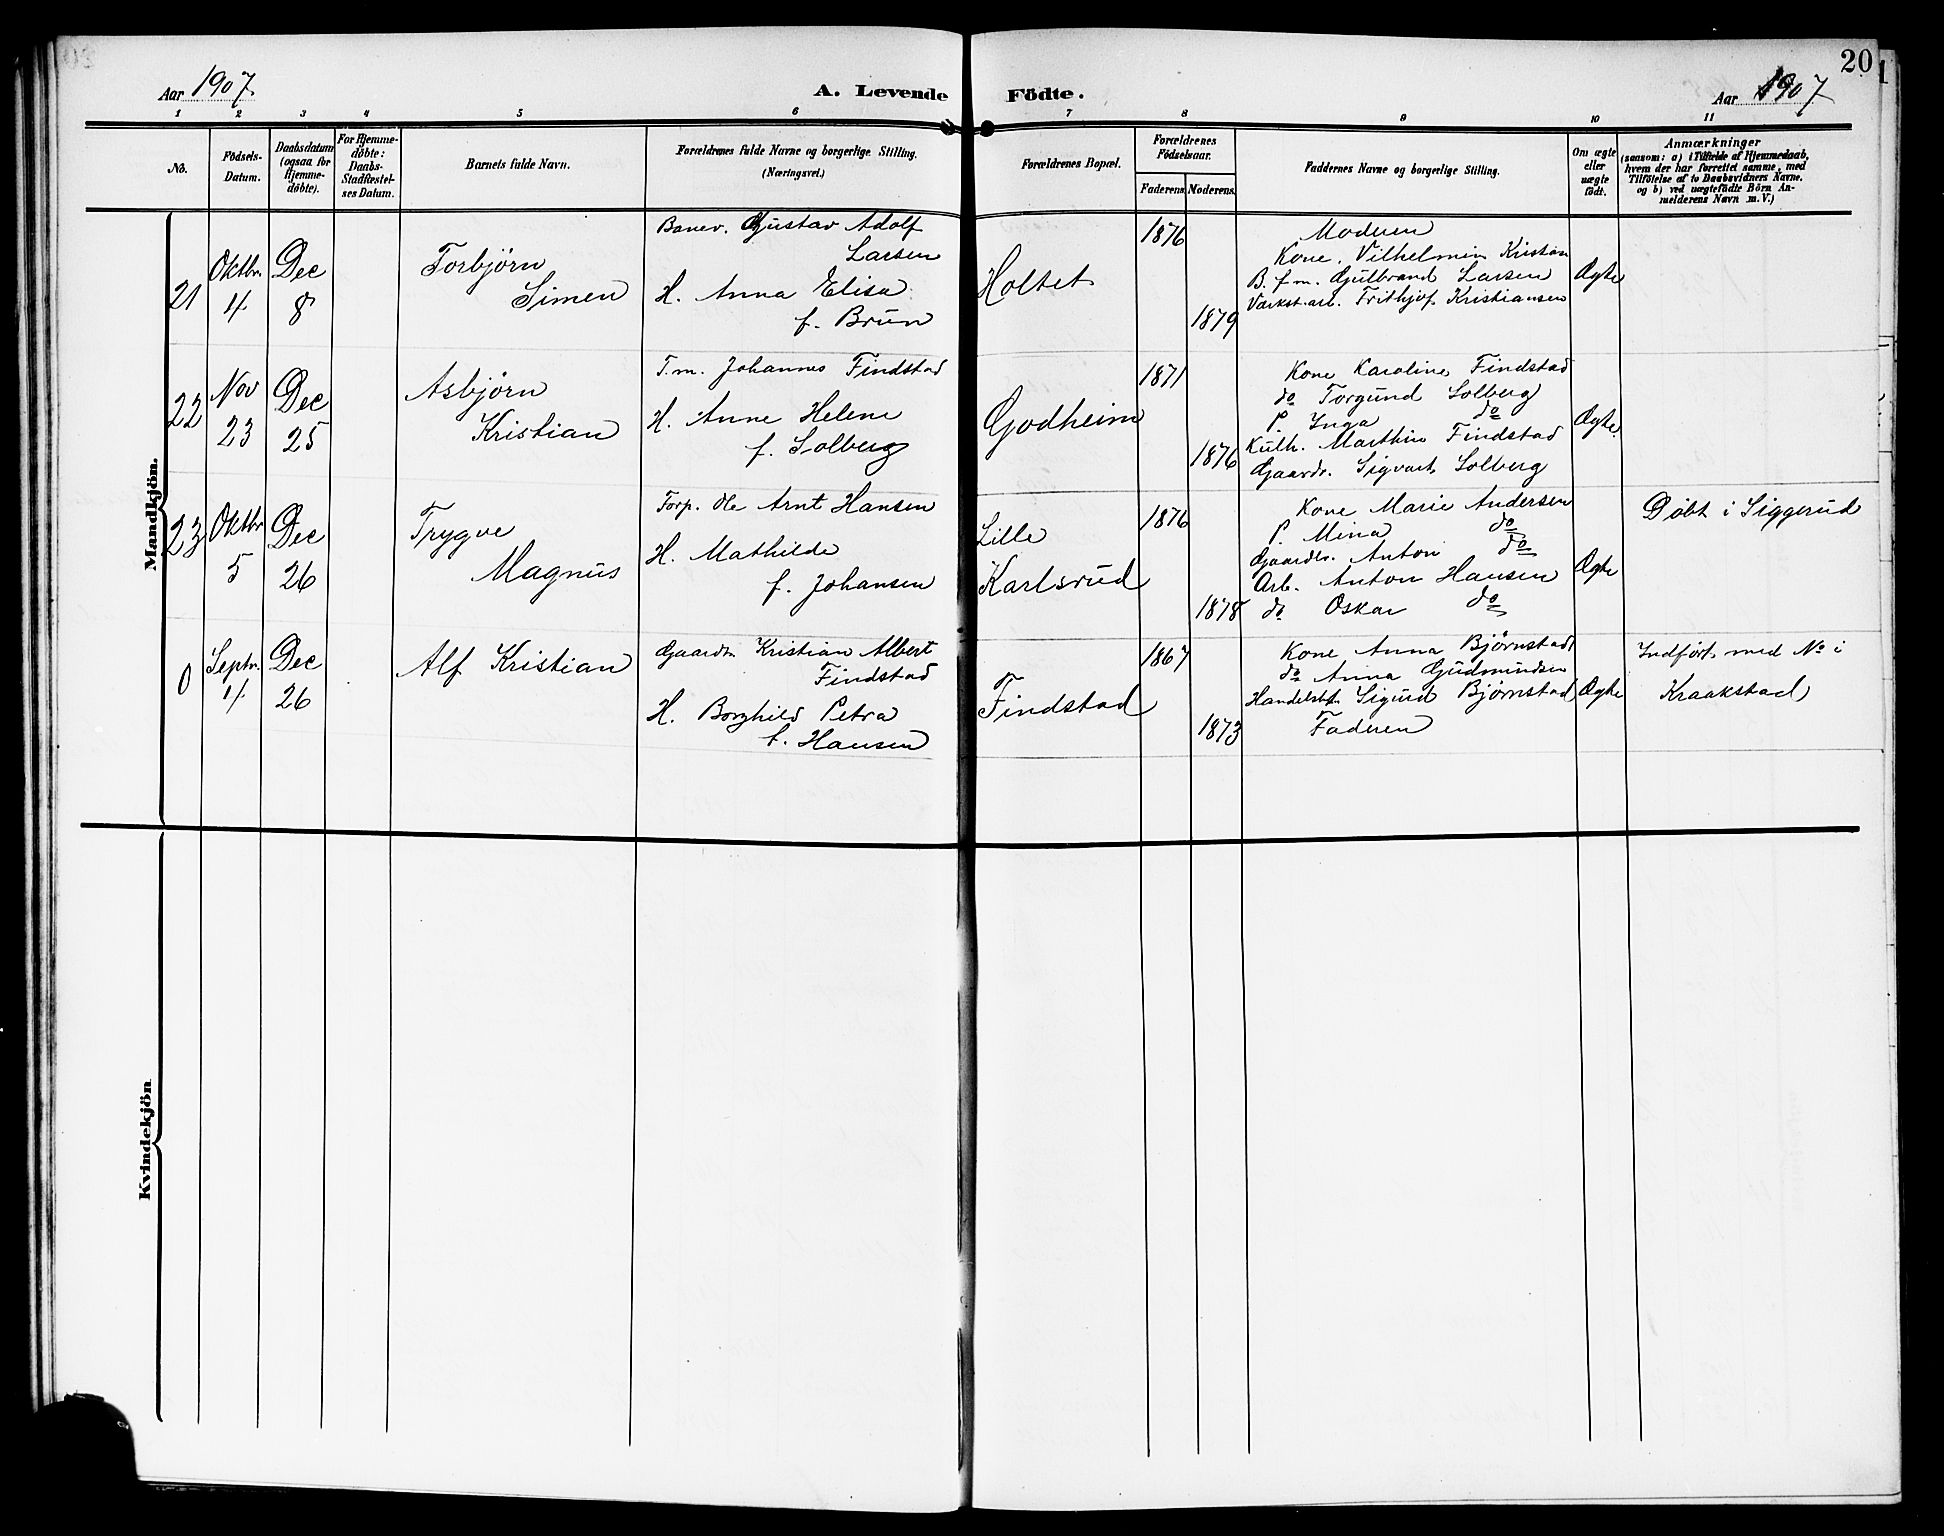 Aar 1907.
A. Levende Födte.
20
Aar 1907
1 2 3 4 5 6 7 8 9 10 11
No.
Födsels-
Datum.
Daabsdatum
(ogsaa for
Hjemme-
døbte).
For Hjemme-
døbte:
Daabs-
Stadfæstel-
ses Datum.
Barnets fulde Navn.
Forældrenes fulde Navne og borgerlige Stilling.
(Næringsvei.)
Forældrenes Bopæl.
Forældrenes
Födselsaar.
Faderens. Moderens.
Faddernes Navne og borgerlige Stilling.
Om ægte
eller
uægte
født.
Anmærkninger
(saasom: a) i Tilfælde af Hjemmedaab,
hvem der har forrettet samme, med
Tilföielse af to Daabsvidners Navne.
og b) ved uægtefödte Börn An-
melderens Navn m. V.)
Mandkjön.
21
Oktbr.
4
Dec
8
Torbjörn
Simen
Banev. Gustav Adolf
Larsen
H. Anna Elisa
f. Brun
Holtet
1876
1879
Moderen
Kone. Vilhelmin Kristian
B. f. m. Gulbrand Larsen
Værkst.arb. Frithjof Kristiansen
Ægte
22
Nov
23
Dec
25
Asbjörn
Kristian
T.m. Johannes Findstad
H. Anne Helene
f. Solberg
Godheim
1871
1876
Kone Karoline Findstad
do Torgund Solberg
P. Inga do
Kulh. Marthin Findstad
Gaardr. Sigvart Solberg
Ægte.
23
Oktbr
5
Dec
26
Trygve
Magnus
Torp. Ole Arnt Hansen
H. Mathilde
f. Johansen
Lille
Karlsrud
1876
1878
Kone Marie Andersen
P. Mina do
Gaardbr. Anton do
Arb. Anton Hansen
do Oskar do
Ægte
Döbt i Siggerud
0
Septr.
4
Dec
26
Alf Kristian
Gaardr. Kristian Albert
Findstad
H. Borghild Petra
f. Hansen
Findstad
1867
1873
Kone Anna Bjørnstad
do Anna Gudmundsen
Handelsbt. Sigurd Bjørnstad
Faderen
Ægte
Indført med No i
Kraakstad
Kvindekjön